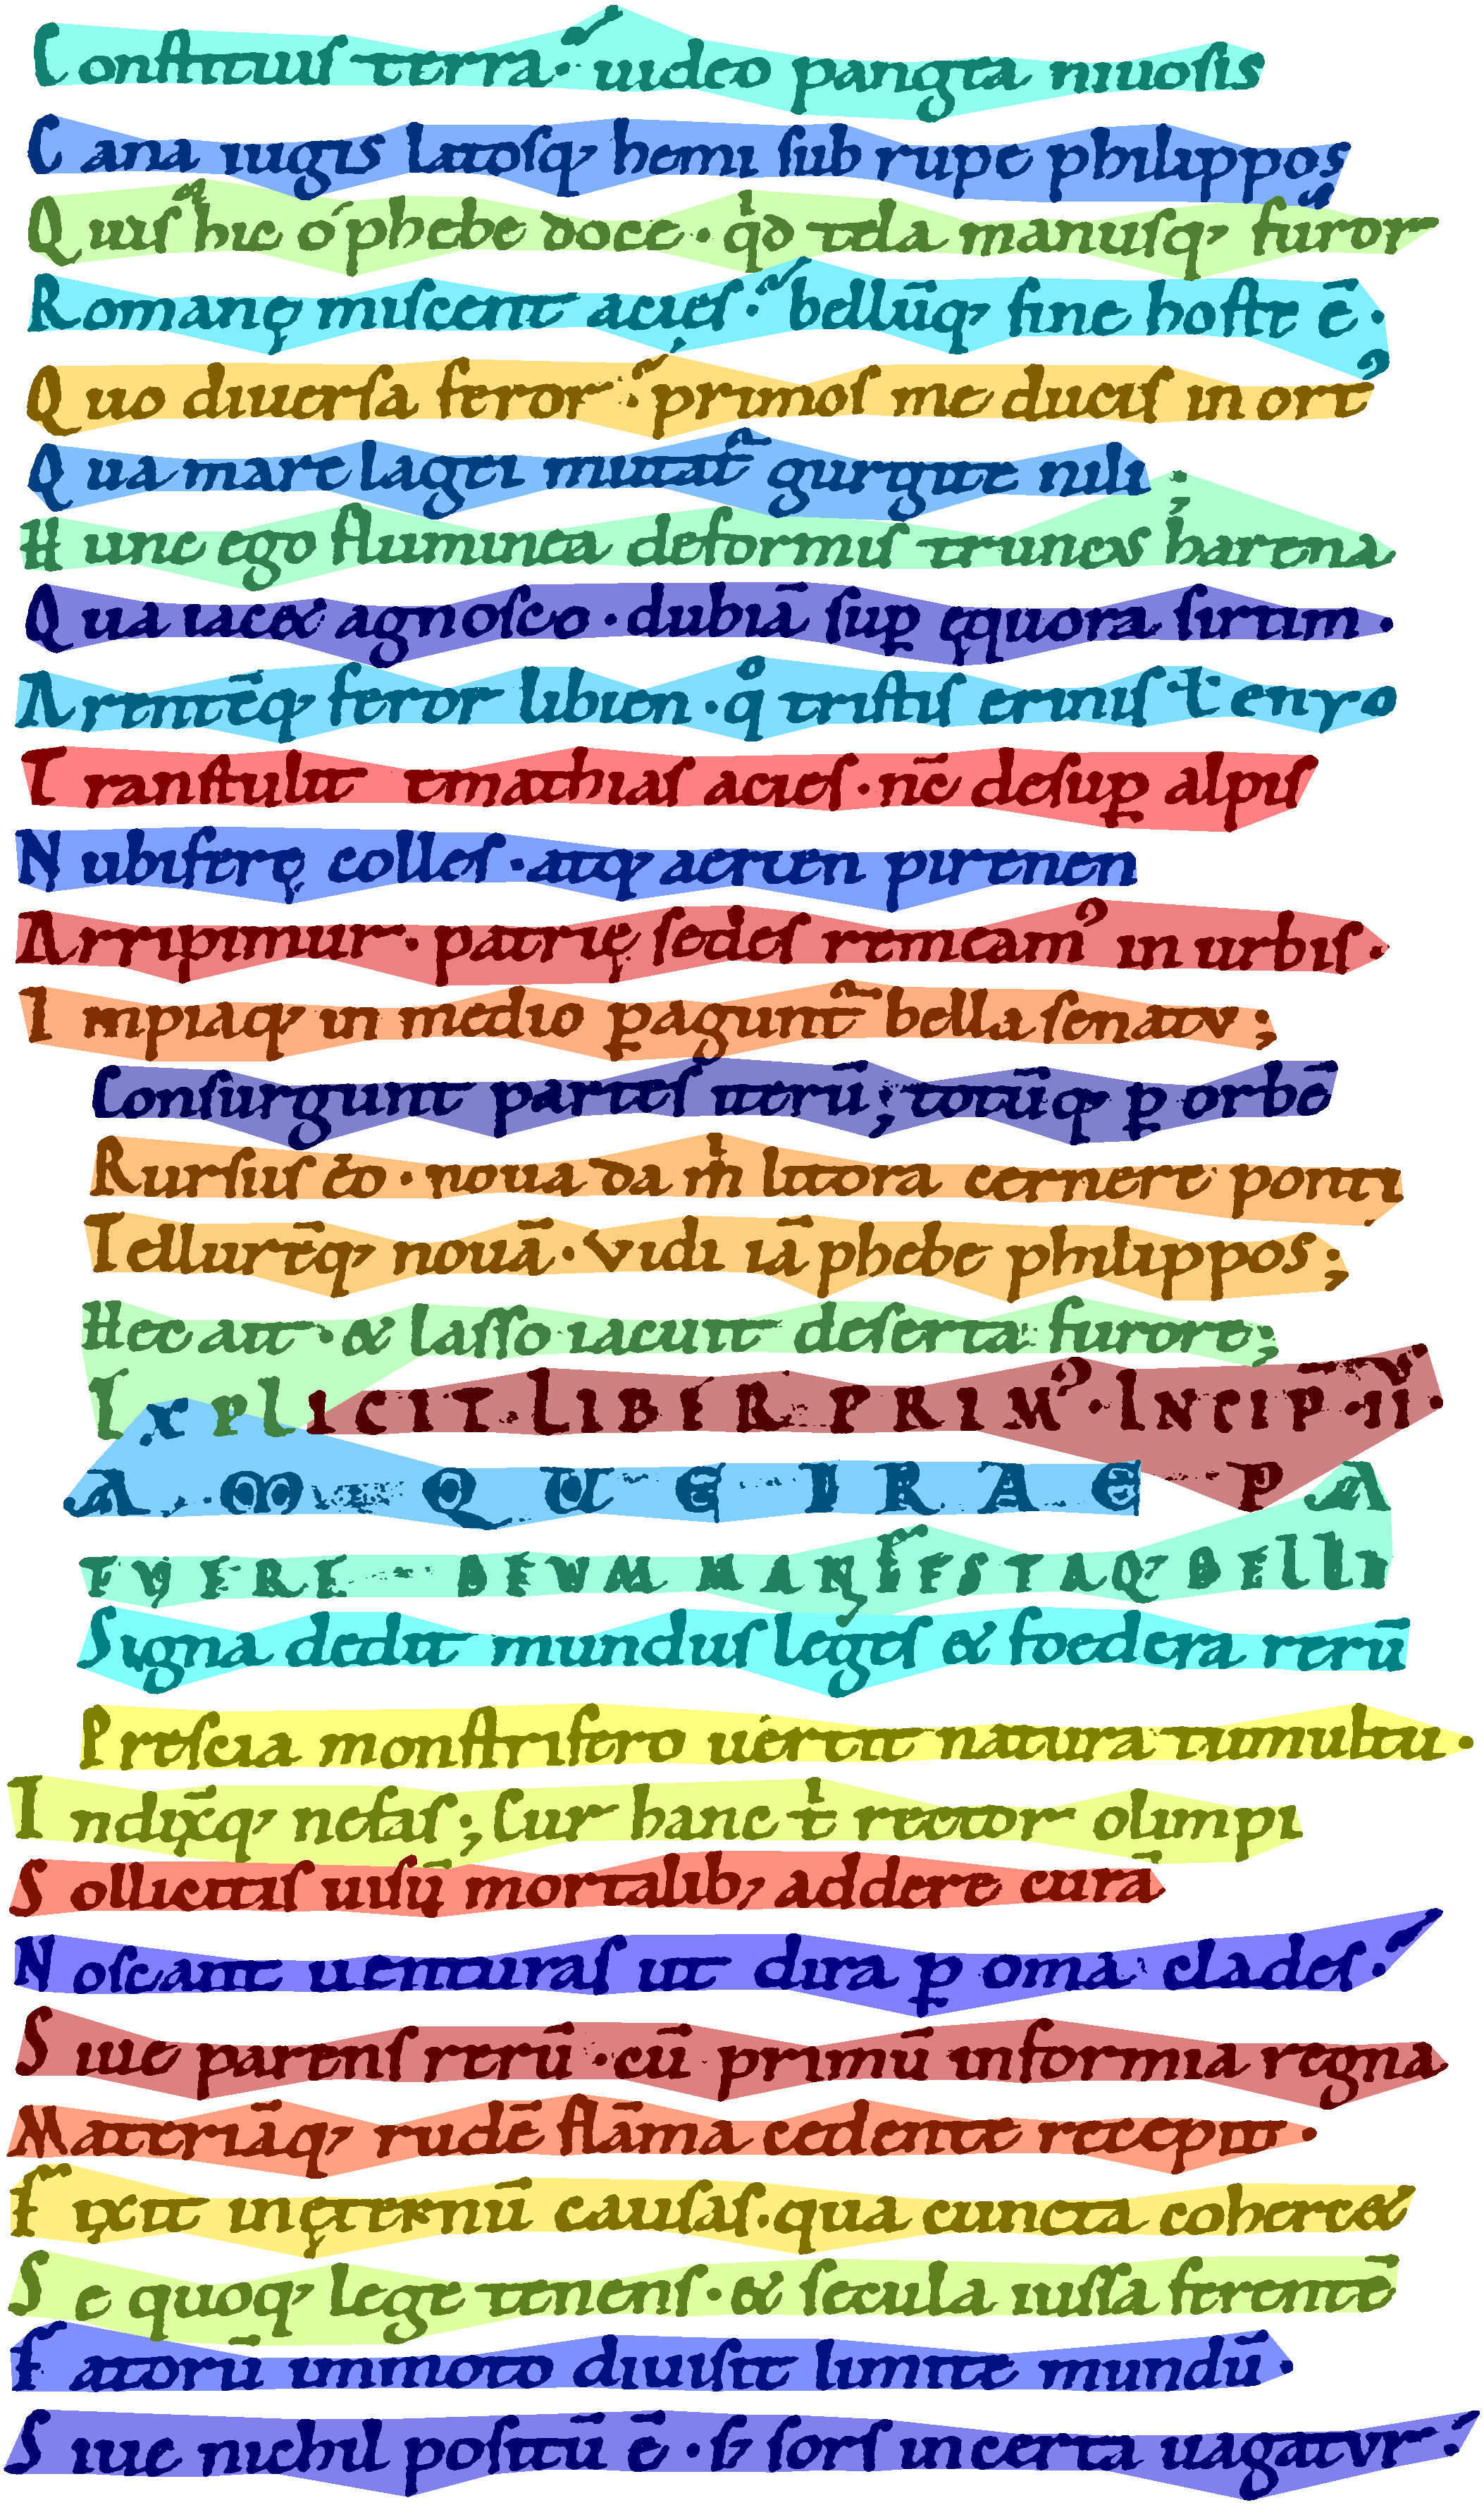 Constituis terra· uideo pangea niuosis
Cana iugis latosq; hemi sub rupe philippos
Quis hic o phebe doce · qđ tela manusq; furor
Romanę miscent acies · bellūq; sine hoste ē·
Quo diuersa feror · primos me ducis in ort
Qua mare lagei mutat gurgite nili
Hunc ego fluminea deformis truncus harena
Qua iacet agnosco · dubiā sup ęquora sirtim ·
Arentēq; feror libien · q° tristis erinis · ł · enyo
Transtulit emathias acies · nc̄ desup alpis
Nubiferę colles · atq; aerien pirenen
Arripimur · patrię sedes remeam' in urbis ·
Impiaq; in medio pagunt bella senatu ;
Consurgunt partes iterū ; totūq; p orbē
Rursus eo · noua da m litora cernere ponti
Tellurēq; nouā · vidi iā phebe philippos ;
Hec ait · & lasso iacuit deserta furore ;
EXPLICIT · LIBER PRIM' · INCIP · II ·
IAMQUE IRAE PA
TUERE DEUM MANIFESTAQ; BELLI
Signa dedit mundus leges & foedera rerū
Prescia monstrifero uertit natura tumultu ·
Indix̄q; nefas ; Cur hanc t rector olimpi
Sollicitis uisū mortalib; addere curā
Noscant uenturas ut dira p om̄a clades ·
Siue parens rerū · cū primū informia regna
Materiāq; rudē flāma cedente recepit ·
Fixit inęternū causas · qua cuncta cohercet
Se quoq; lege tenens · & secula iussa ferentē
Fatorū immoto diuisit limite mundū ·
Siue nichil positū ē · s; sors incerta uagatur ·